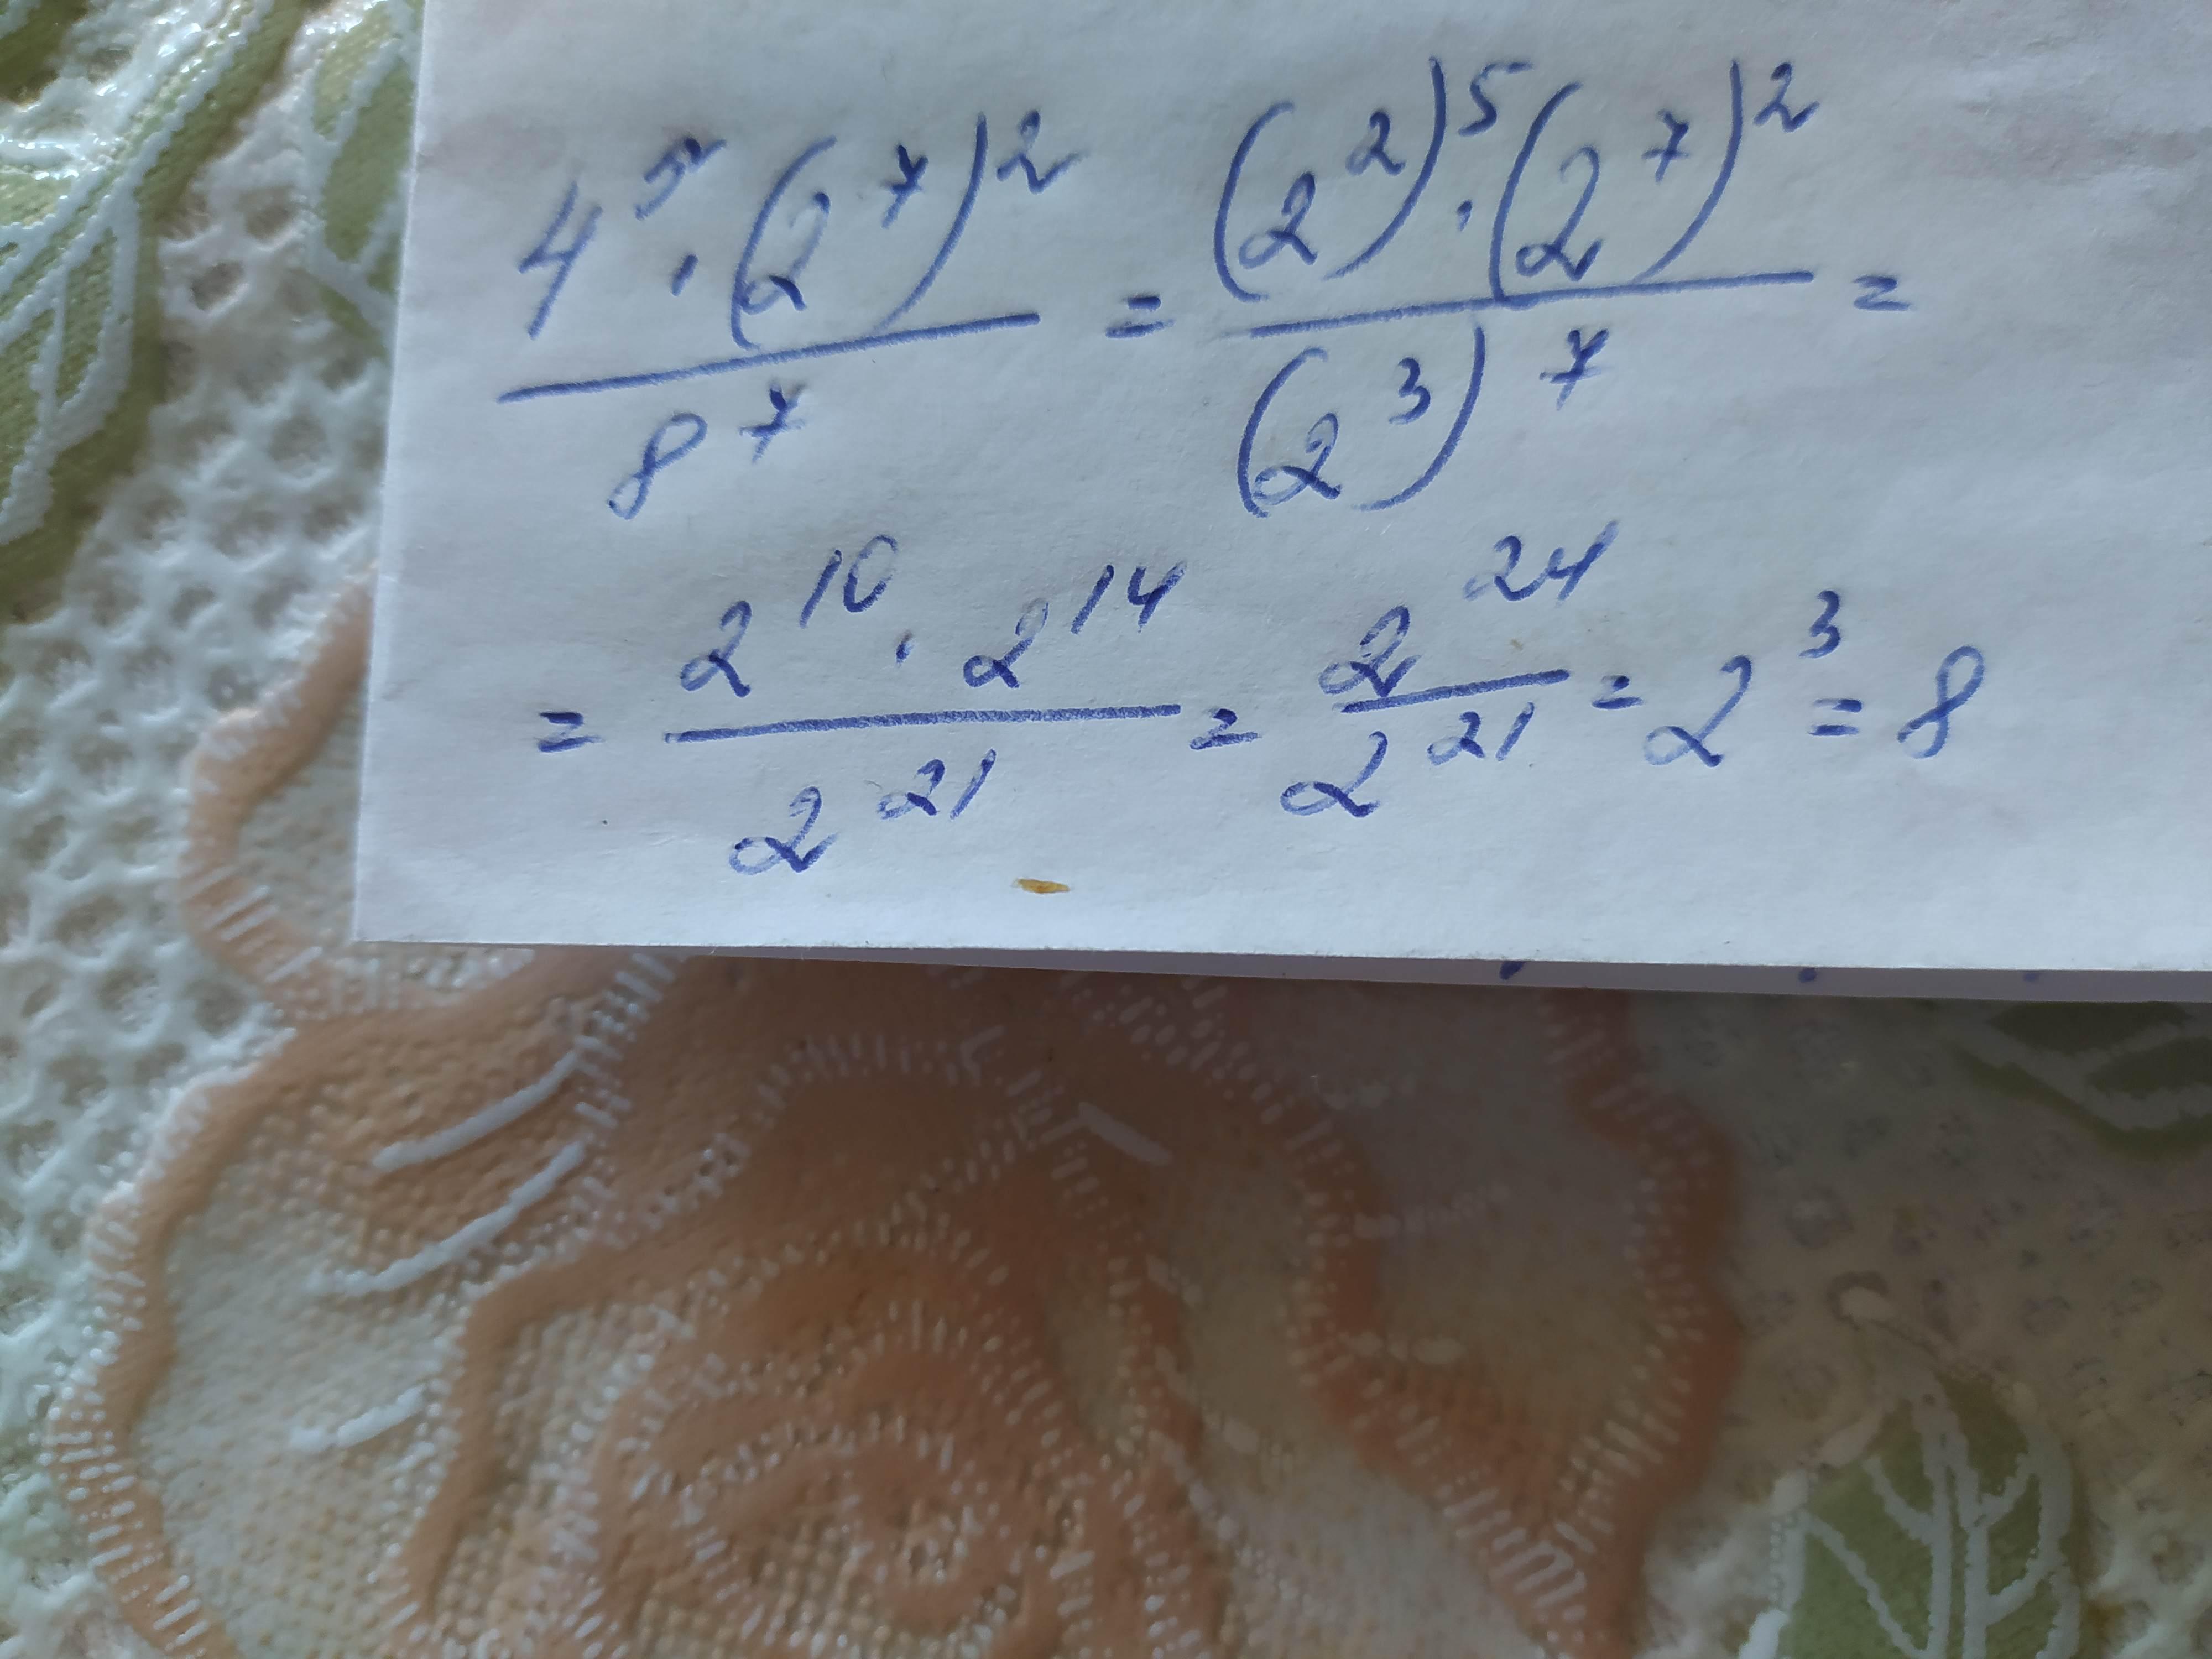 4⁵ · (2⁷)² / 8⁷ = (2²)⁵ · (2⁷)² / (2³)⁷ =
= 2¹⁰ · 2¹⁴ / 2²¹ = 2²⁴ / 2²¹ = 2³ = 8